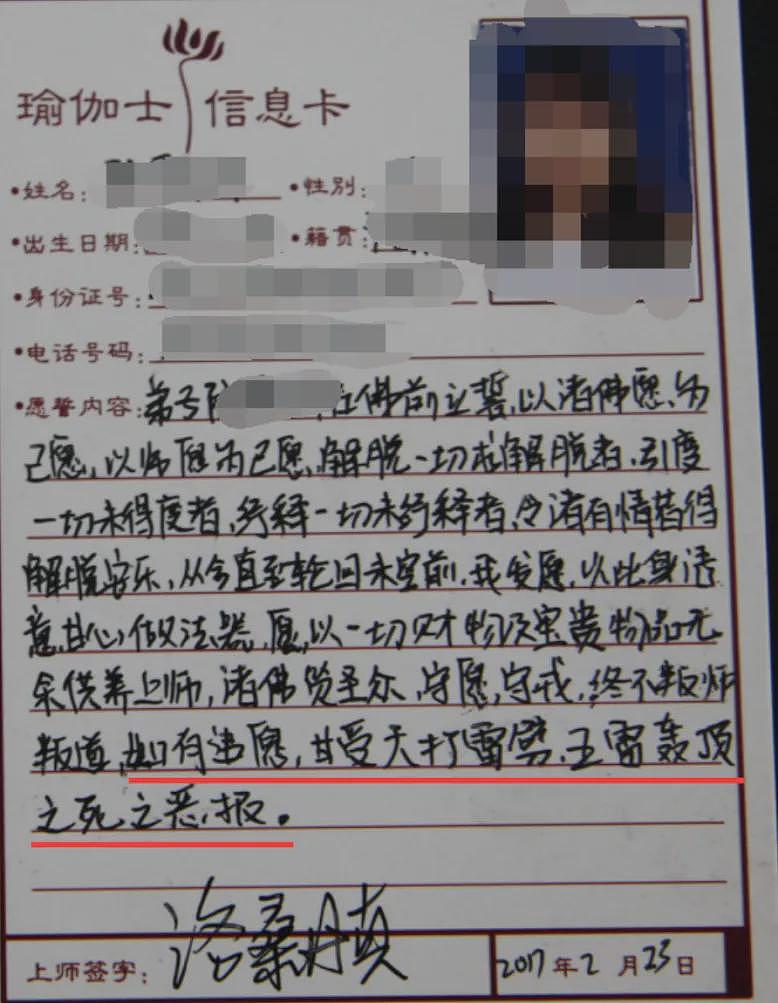 瑜伽士信息卡
•姓名:
•性别:
•出生日期:
•籍贯:
•身份证号:
•电话号码:
•愿誓内容:弟子 在佛前立誓,以诸佛愿为
己愿,以师愿为己愿,解脱一切求解脱者,引度
一切未得度者,纾释一切未纾释者,令诸有情皆得
解脱安乐,从今直至轮回未空前,我发愿,以此身语
意,甘心做法器,愿以一切财物及宝贵物品无
余供养上师,诸佛贤圣众,守愿,守戒,终不叛师
叛道,如有违愿,甘受天打雷劈,五雷轰顶
之死之恶报。
上师签字:洛桑丹真
2017年2月23日